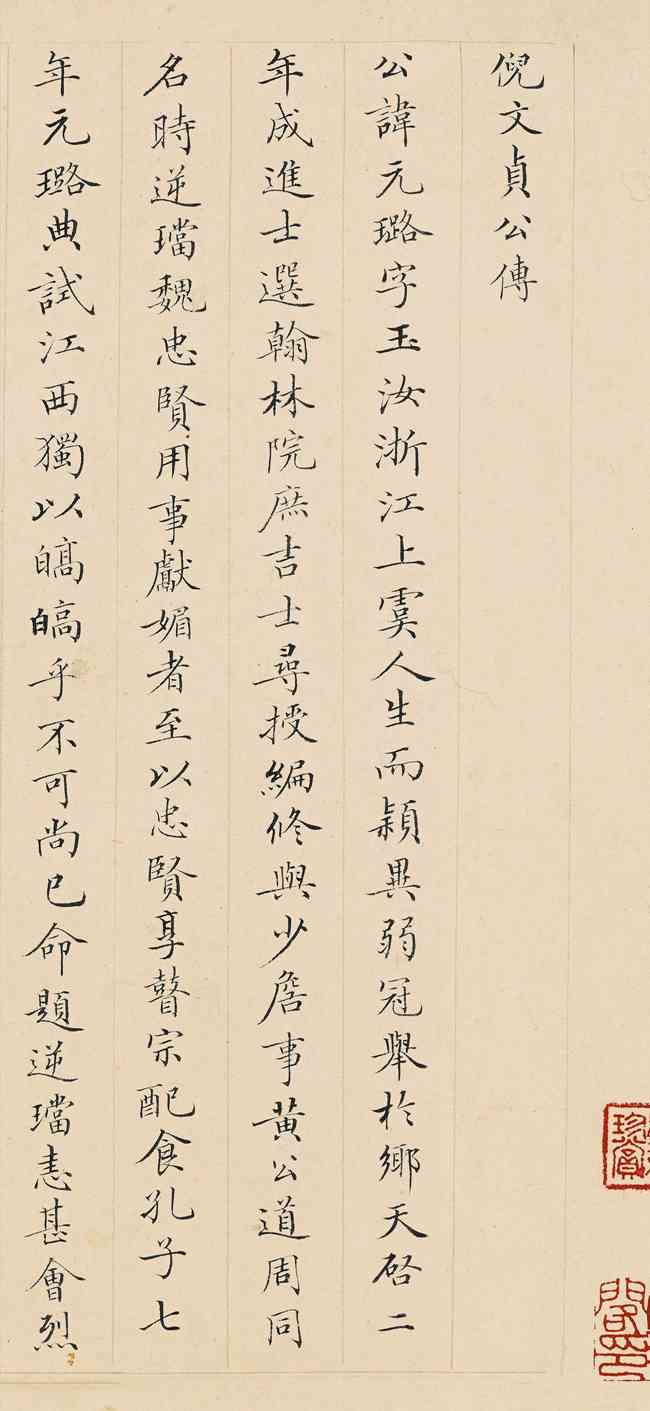 倪文貞公傳
公諱元璐字玉汝浙江上虞人生而穎異弱冠舉於鄉天啓二
年成進士選翰林院庶吉士尋授編修與少詹事黃公道周同
名時逆璫魏忠賢用事獻媚者至以忠賢享瞽宗配食孔子七
年元璐典試江西獨以皜皜乎不可尚已命題逆璫恚甚會烈